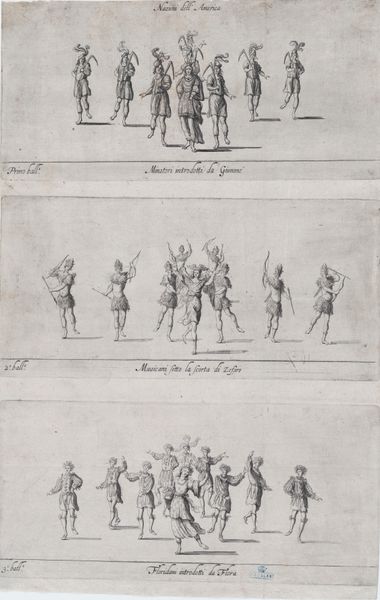 Nationi dell' America
Primo ball.º
Minatori introdotti da Giunone
2.º ball.º
Musicani sotto la scorta di Zefiro
3.º ball.º
Floridani introdotti da Flora